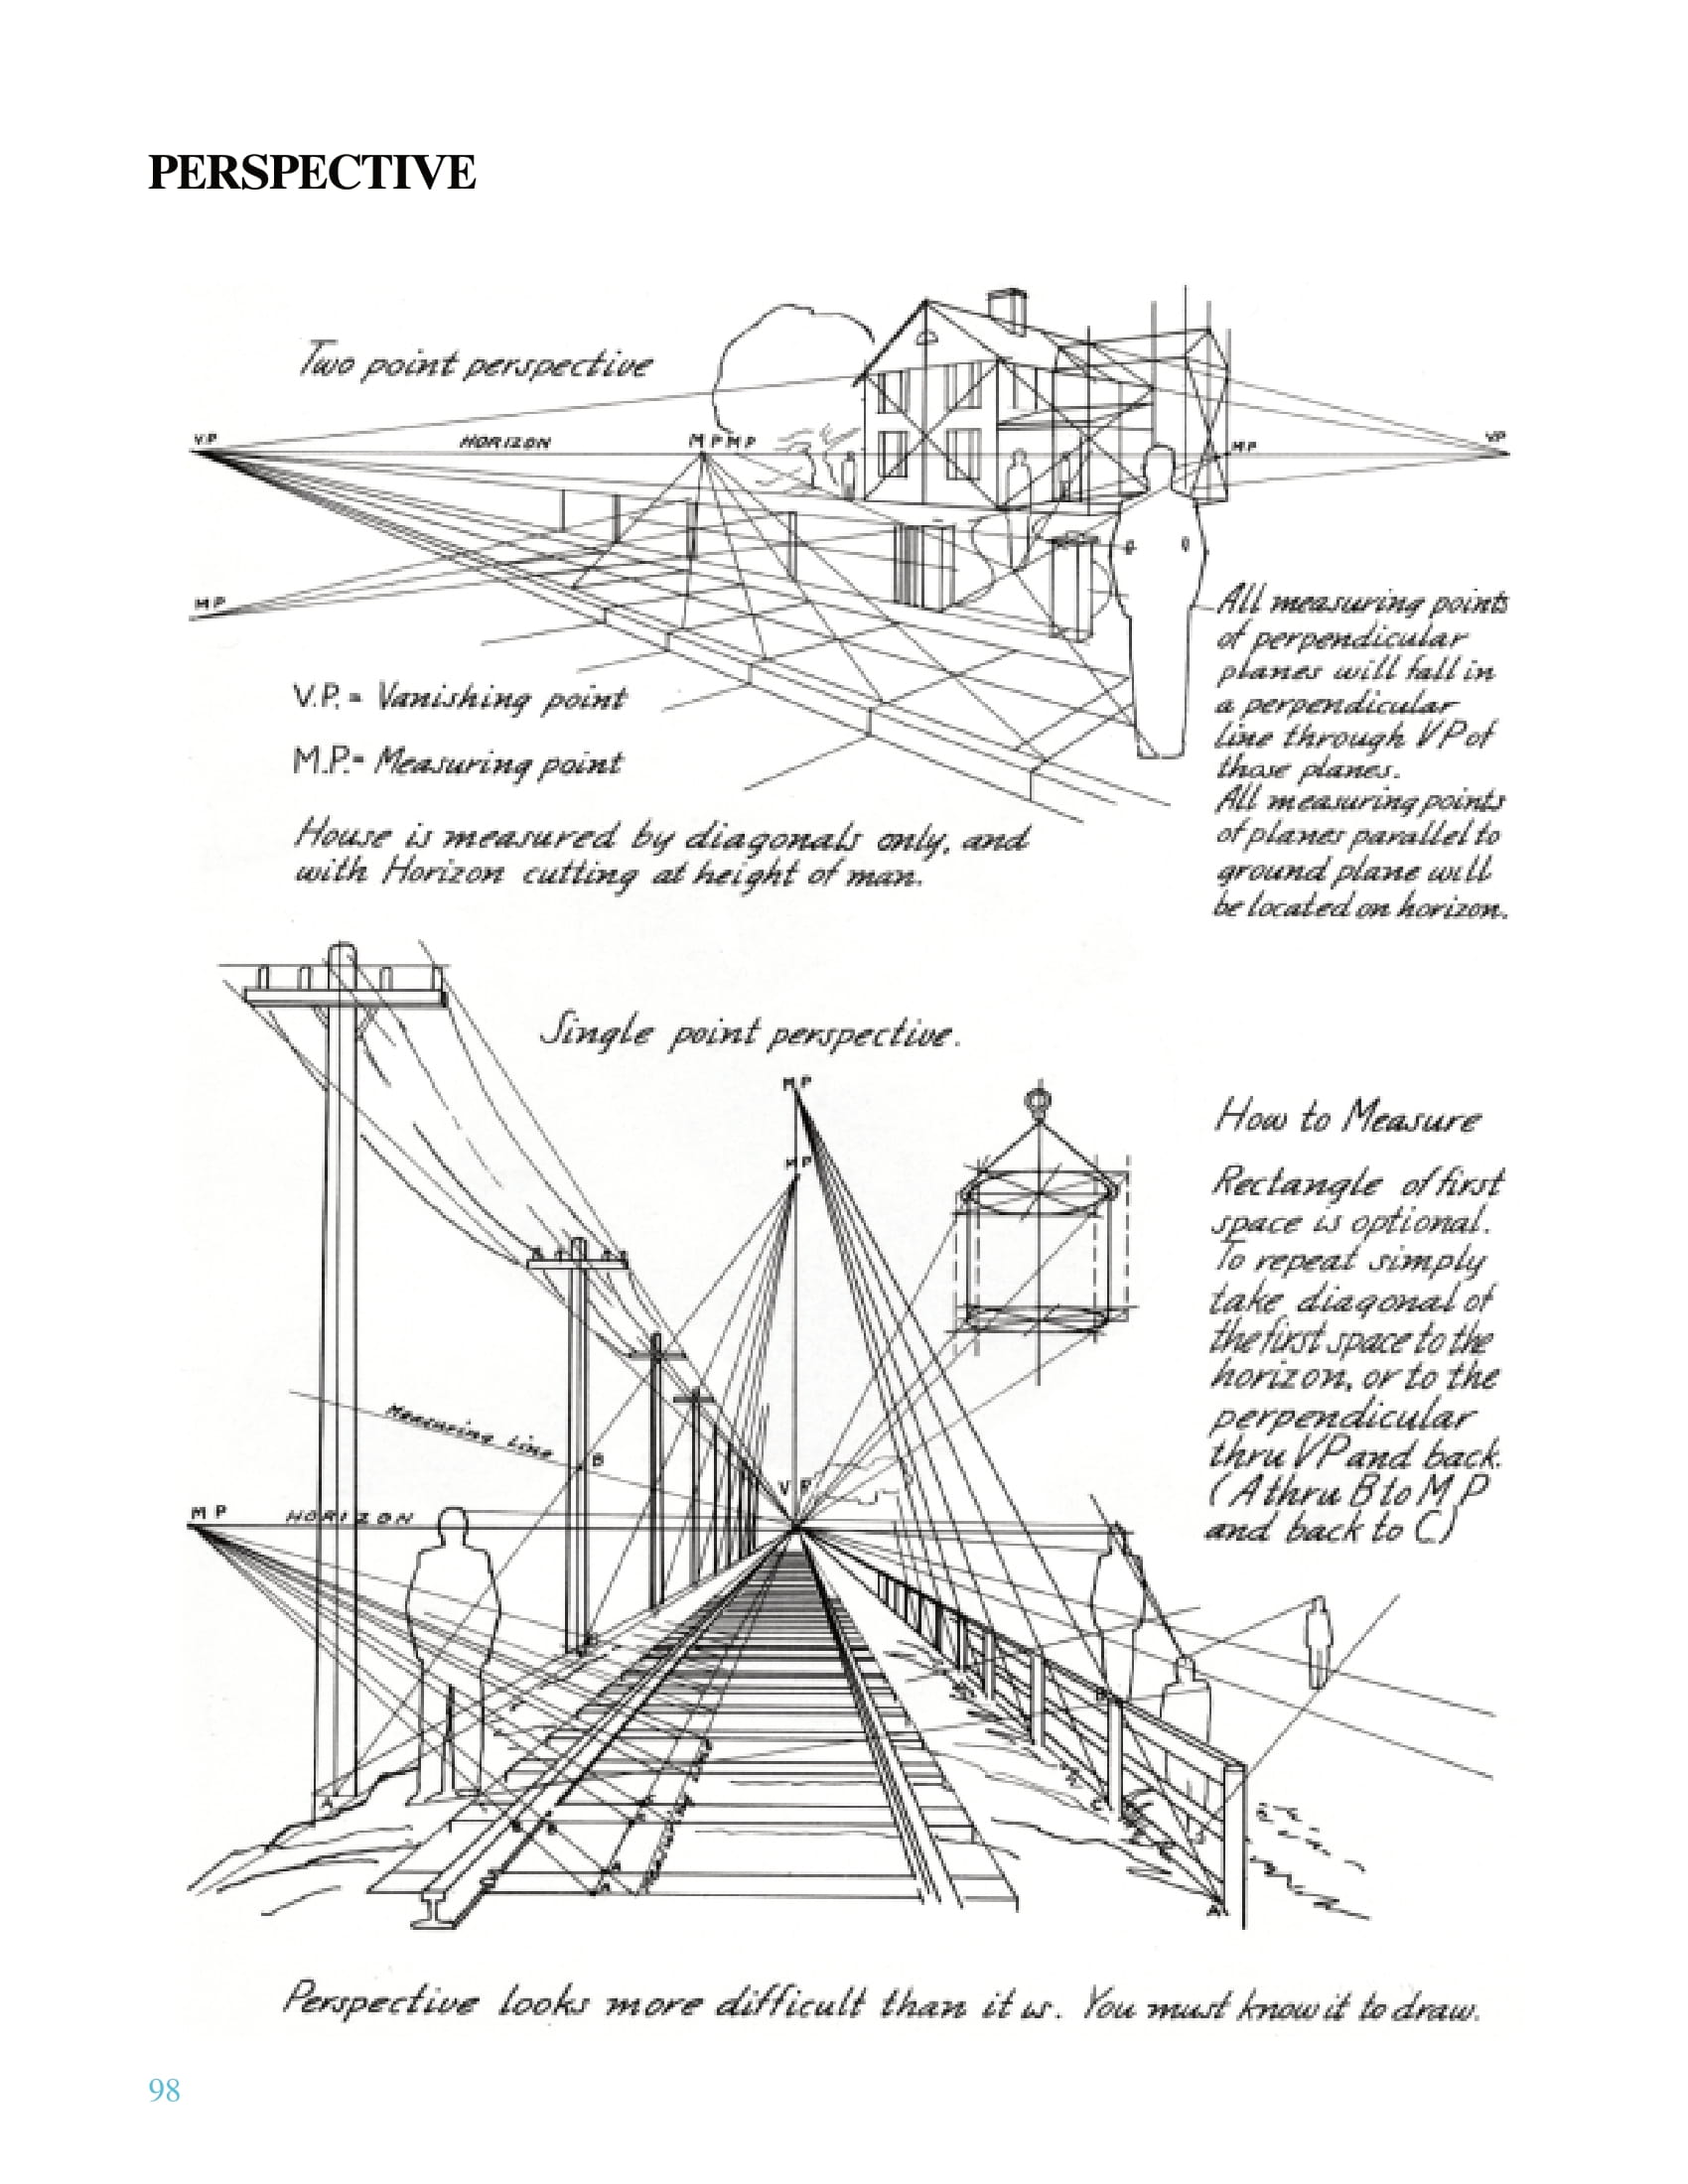 PERSPECTIVE
Two point perspective
VP
HORIZON
MP MP
MP
VP
MP
V.P. = Vanishing point
M.P.= Measuring point
House is measured by diagonals only, and
with Horizon cutting at height of man.
All measuring points
of perpendicular
planes will fall in
a perpendicular
line through VP of
those planes.
All measuring points
of planes parallel to
ground plane will
be located on horizon.
Single point perspective.
MP
MP
Measuring Line
B
VP
MP
HORIZON
How to Measure
Rectangle of first
space is optional.
To repeat simply
take diagonal of
the first space to the
horizon, or to the
perpendicular
thru VP and back.
(A thru B to M P
and back to C)
C
B
A
C
B
B
C
A
A
A
Perspective looks more difficult than it is. You must know it to draw.
98